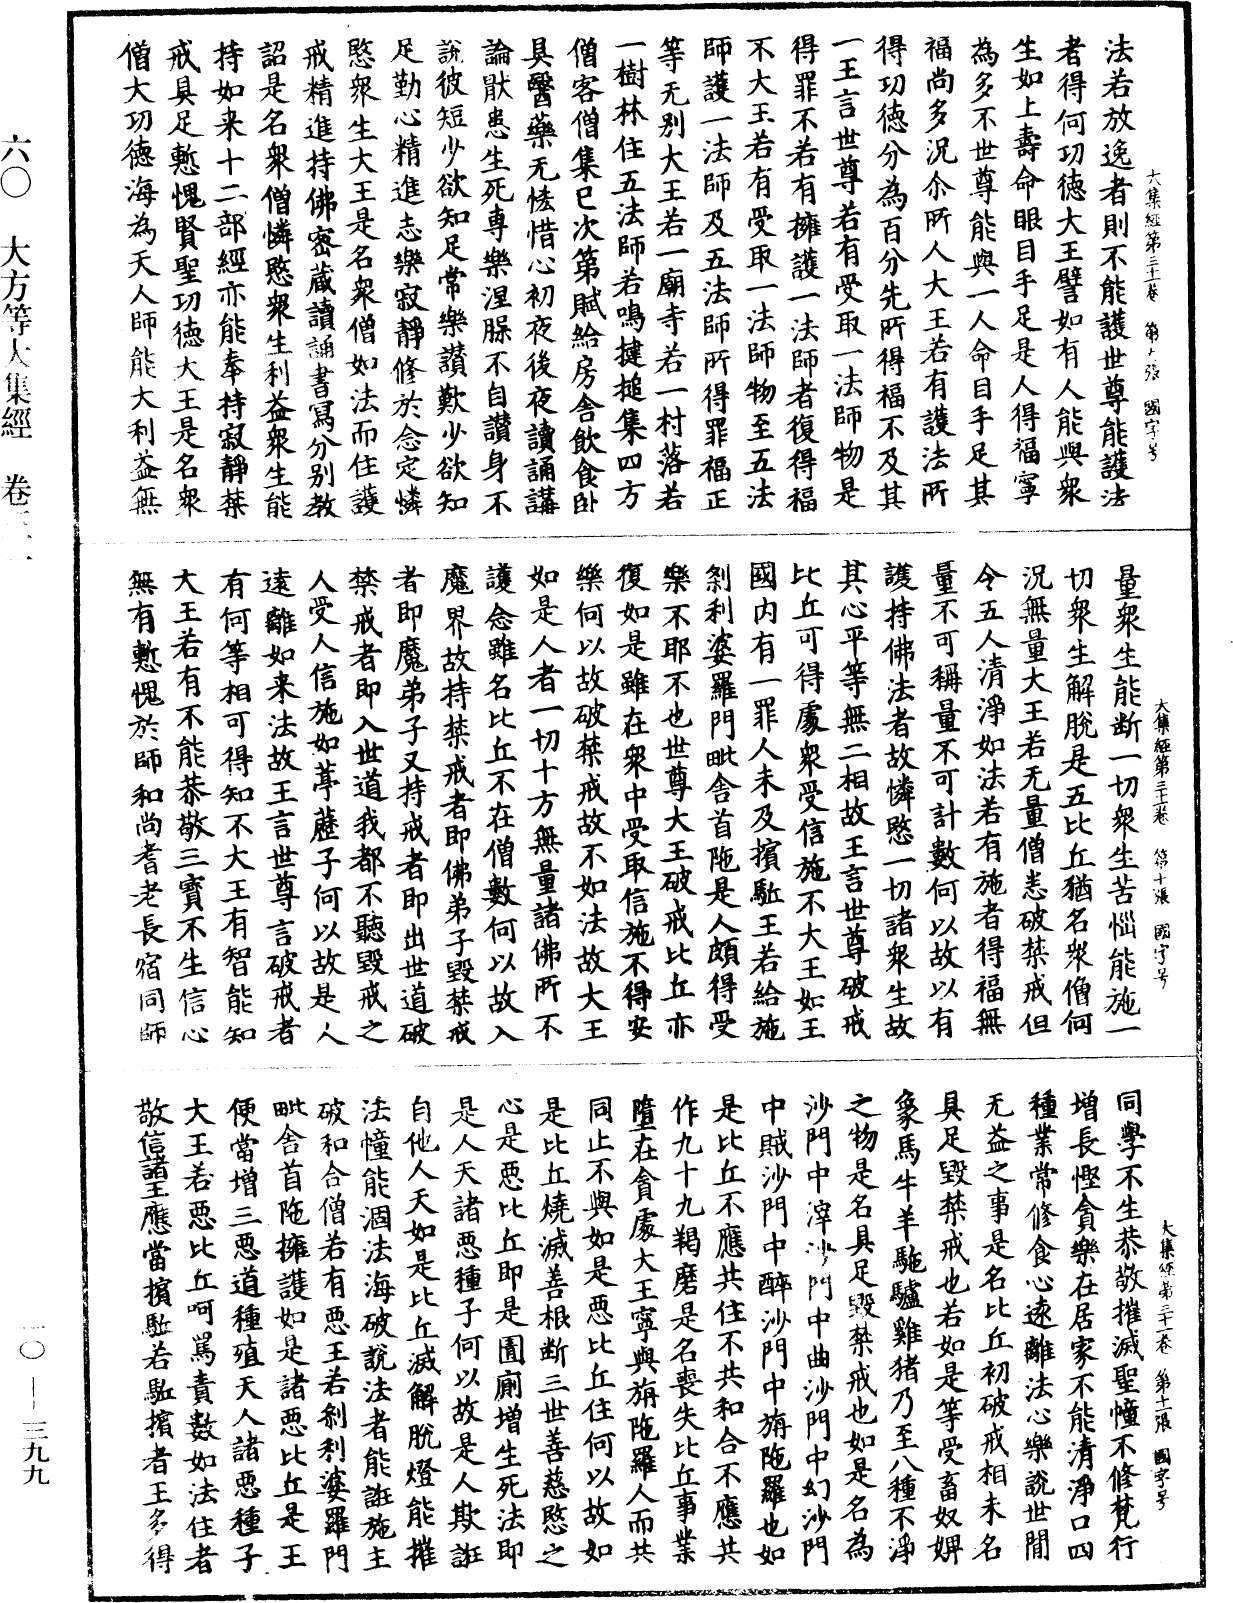 六〇　大方等大集經　卷三一
一〇——三九九
大集經第三十一卷　第九張　國字号
法若放逸者則不能護世尊能護法
者得何功徳大王譬如有人能與衆
生如上壽命眼目手足是人得福寧
為多不世尊能與一人命目手足其
福尚多況尒所人大王若有護法所
得功徳分為百分先所得福不及其
一王言世尊若有受取一法師物是
得罪不若有擁護一法師者復得福
不大王若有受取一法師物至五法
師護一法師及五法師所得罪福正
等无别大王若一廟寺若一村落若
一樹林住五法師若鳴揵槌集四方
僧客僧集已次第賦給房舎飲食卧
具醫藥无悋惜心初夜後夜讀誦講
論猒患生死専樂涅槃不自讃身不
說彼短少欲知足常樂讃歎少欲知
足勤心精進志樂寂靜修於念定憐
愍衆生大王是名衆僧如法而住護
戒精進持佛宻藏讀誦書寫分别教
詔是名衆僧憐愍衆生利益衆生能
持如来十二部經亦能奉持寂靜禁
戒具足慙愧賢聖功徳大王是名衆
僧大功徳海為天人師能大利益無
大集經第三十一卷　第十張　國字号
量衆生能断一切衆生苦惱能施一
切衆生解脫是五比丘猶名衆僧何
況無量大王若无量僧悉破禁戒但
令五人清淨如法若有施者得福無
量不可稱量不可計數何以故以有
護持佛法者故憐愍一切諸衆生故
其心平等無二相故王言世尊破戒
比丘可得處衆受信施不大王如王
國内有一罪人未及擯駈王若給施
剎利婆羅門毗舎首陁是人頗得受
樂不耶不也世尊大王破戒比丘亦
復如是雖在衆中受取信施不得安
樂何以故破禁戒故不如法故大王
如是人者一切十方無量諸佛所不
護念雖名比丘不在僧數何以故入
魔界故持禁戒者即佛弟子毀禁戒
者即魔弟子又持戒者即出世道破
禁戒者即入世道我都不聽毀戒之
人受人信施如葶藶子何以故是人
遠離如来法故王言世尊言破戒者
有何等相可得知不大王有智能知
大王若有不能恭敬三寶不生信心
無有慙愧於師和尚耆老長宿同師
大集經第三十一卷　第十一張　國字号
同學不生恭敬摧滅聖幢不修梵行
增長慳貪樂在居家不能清淨口四
種業常修食心遠離法心樂說世間
无益之事是名比丘初破戒相未名
具足毀禁戒也若如是等受畜奴婢
象馬牛羊駞驢雞猪乃至八種不淨
之物是名具足毀禁戒也如是名為
沙門中滓沙門中曲沙門中幻沙門
中賊沙門中醉沙門中旃陁羅也如
是比丘不應共住不共和合不應共
作九十九羯磨是名喪失比丘事業
墮在貪處大王寧與旃陁羅人而共
同止不與如是惡比丘住何以故如
是比丘燒滅善根断三世善慈愍之
心是惡比丘即是圊廁增生死法即
是人天諸惡種子何以故是人欺誑
自他人天如是比丘滅解脫燈能摧
法幢能涸法海破說法者能誑施主
破和合僧若有惡王若剎利婆羅門
毗舎首陁擁護如是諸惡比丘是王
便當增三惡道種殖天人諸惡種子
大王若惡比丘呵罵責數如法住者
敬信諸王應當擯駈若駈擯者王多得